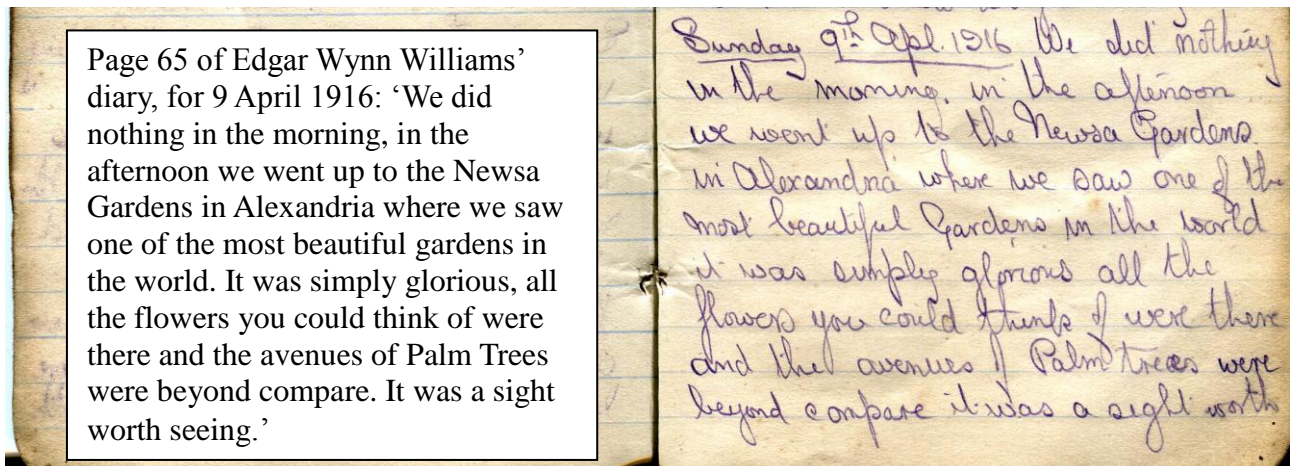 Page 65 of Edgar Wynn Williams’
diary, for 9 April 1916: ‘We did
nothing in the morning, in the
afternoon we went up to the Newsa
Gardens in Alexandria where we saw
one of the most beautiful gardens in
the world. It was simply glorious, all
the flowers you could think of were
there and the avenues of Palm Trees
were beyond compare. It was a sight
worth seeing.’
Sunday 9th Apl. 1916 We did nothing
in the morning, in the afternoon
we went up to the Newsa Gardens
in Alexandria where we saw one of the
most beautiful Gardens in the world
it was simply glorious all the
flowers you could think of were there
and the avenues of Palm trees were
beyond compare it was a sight worth